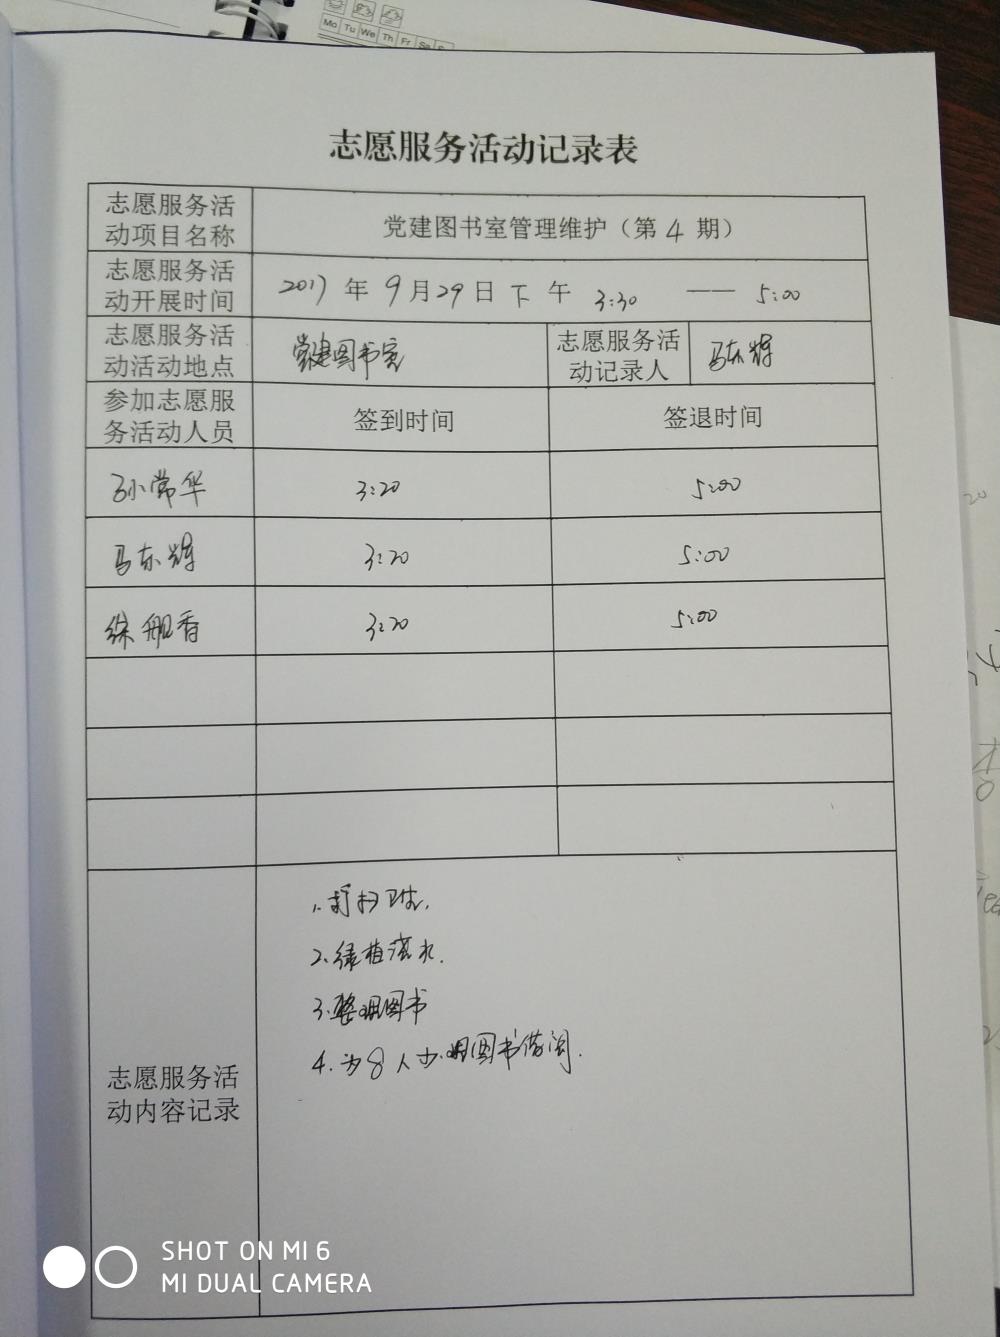 Mo Tu We Th Fr Sa
志愿服务活动记录表
志愿服务活
动项目名称
党建图书室管理维护（第 4 期）
志愿服务活
动开展时间
2017 年 9 月 29 日 下 午 3:30 —— 5:00
志愿服务活
动活动地点
党建图书室
志愿服务活
动记录人
马东辉
参加志愿服
务活动人员
签到时间
签退时间
孙常华 3:20 5:00
马东辉 3:20 5:00
徐 香 3:20 5:00
志愿服务活
动内容记录
1.打扫卫生.
2.绿植浇水.
3.整理图书
4.为8人办理图书借阅.
SHOT ON MI 6
MI DUAL CAMERA